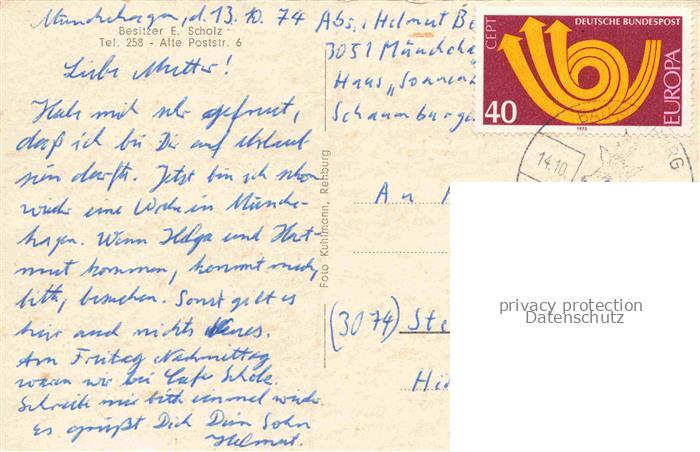 Münchehagen, d. 13. 10. 74
Besitzer E. Scholz
Tel. 258 - Alte Poststr. 6
Liebe Mutter!
Habe mich sehr gefreut,
daß ich bei Dir auf Urlaub
sein durfte. Jetzt bin ich schon
wieder eine Woche in Münche-
hagen. Wenn Helga und Hart-
mut kommen, kommt mich,
bitte, besuchen. Sonst gibt es
hier auch nichts Neues.
Am Freitag Nachmittag
waren wir bei Cafe Scholz.
Schreibe mir bitte einmal wieder
Es grüßt Dich Dein Sohn
Helmut.
Foto Kuhlmann, Rehburg
Abs.: Helmut Be
3051 Münchh
Haus „Sonnen
Schaumburge
DEUTSCHE BUNDESPOST
CEPT
EUROPA
40
1973
BAD
BURG
14.10.
An
(3074) Ste
Hi
privacy protection
Datenschutz